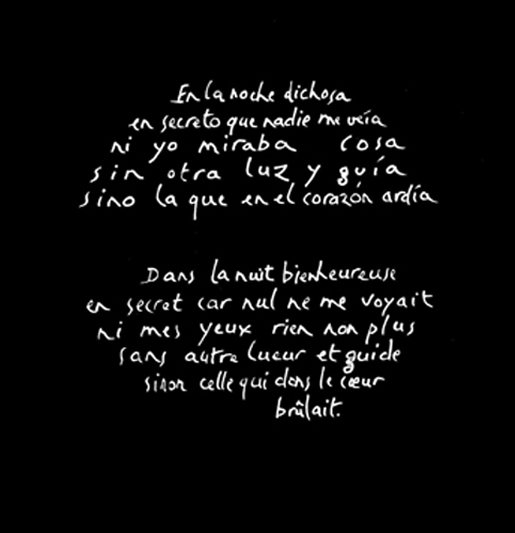 En la noche dichosa
en secreto que nadie me veía
ni yo miraba cosa
sin otra luz y guía
sino la que en el corazón ardía
Dans la nuit bienheureuse
en secret car nul ne me voyait
ni mes yeux rien non plus
sans autre lueur et guide
sinon celle qui dans le cœur
brûlait.